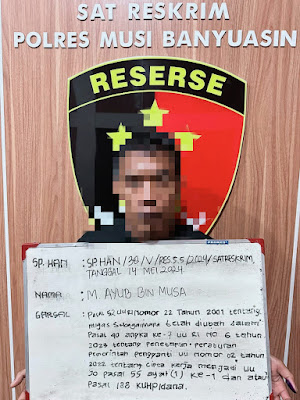 SAT RESKRIM
POLRES MUSI BANYUASIN
RESERSE
SP. HAN : SP.HAN/36/V/RES.5.5/2024/SATRESKRIM,
TANGGAL 14 MEI 2024
NAMA : M. AYUB BIN MUSA
: Pasal 52 UU Nomor 22 Tahun 2001 tentang
migas Sebagaimana telah diubah dalam
Pasal 40 angka ke-7 UU RI NO 6 tahun
2023 tentang penetapan peraturan
Pemerintah pengganti UU nomor 02 tahun
2022 tentang cipta kerja menjadi UU
Jo pasal 55 ayat (1) ke-1 dan atau
Pasal 188 KUHPidana.